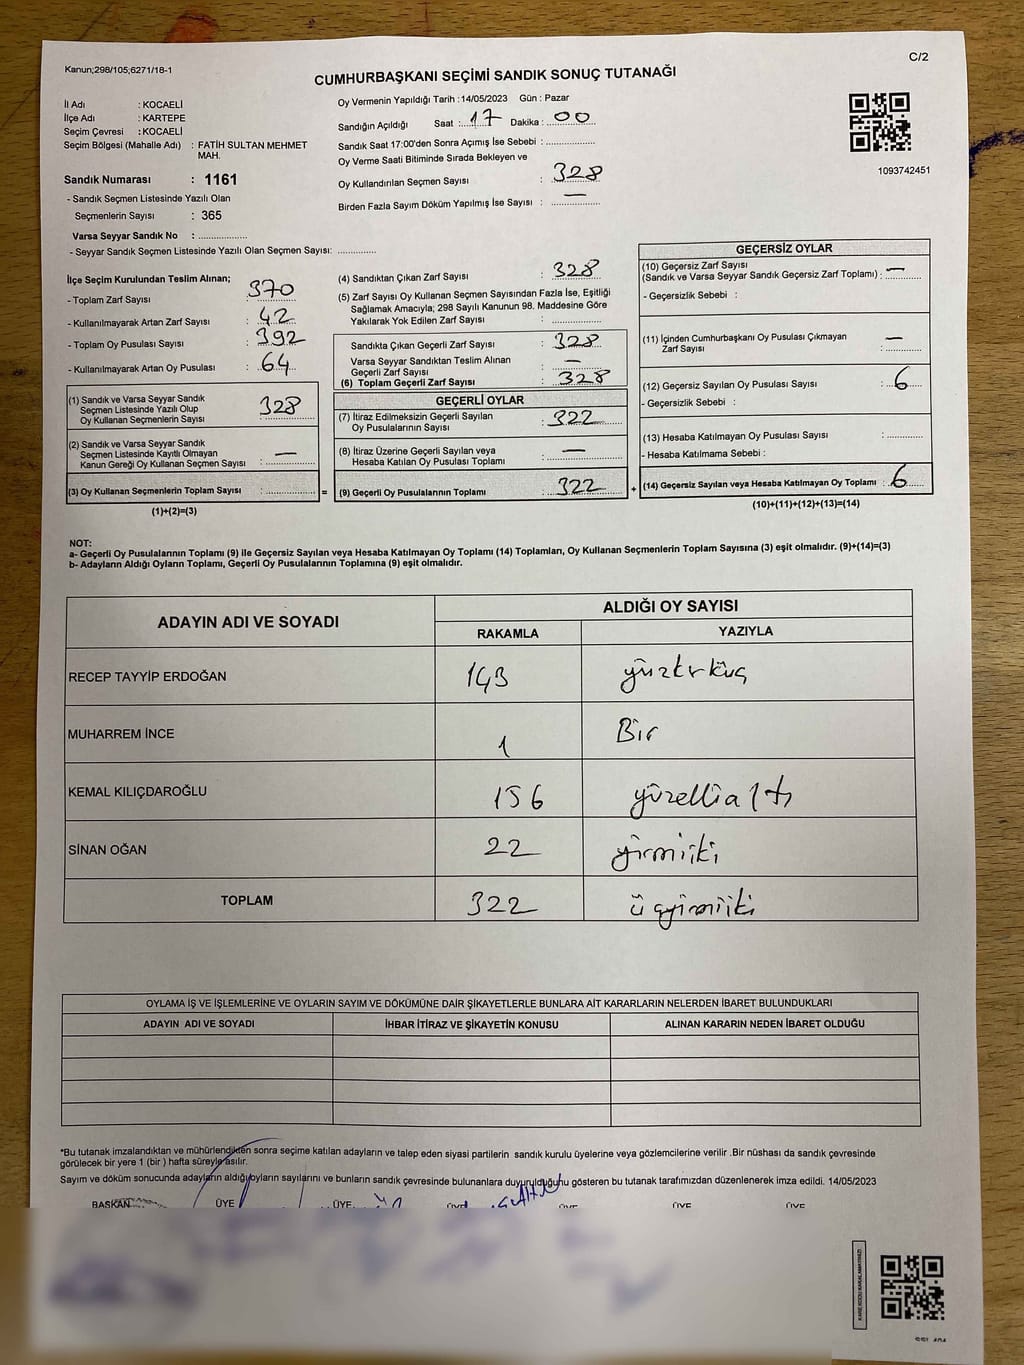 Kanun;298/105;6271/18-1
C/2
CUMHURBAŞKANI SEÇİMİ SANDIK SONUÇ TUTANAĞI
İl Adı : KOCAELİ
İlçe Adı : KARTEPE
Seçim Çevresi : KOCAELİ
Seçim Bölgesi (Mahalle Adı) : FATİH SULTAN MEHMET
MAH.
Sandık Numarası : 1161
- Sandık Seçmen Listesinde Yazılı Olan
Seçmenlerin Sayısı : 365
Varsa Seyyar Sandık No : ..................
- Seyyar Sandık Seçmen Listesinde Yazılı Olan Seçmen Sayısı: ..............
Oy Vermenin Yapıldığı Tarih :14/05/2023 Gün : Pazar
Sandığın Açıldığı Saat : 17 Dakika : 00
Sandık Saat 17:00'den Sonra Açımış İse Sebebi : ..................
Oy Verme Saati Bitiminde Sırada Bekleyen ve
Oy Kullandırılan Seçmen Sayısı : 328
Birden Fazla Sayım Döküm Yapılmış İse Sayısı : —
1093742451
İlçe Seçim Kurulundan Teslim Alınan;
- Toplam Zarf Sayısı : 370
- Kullanılmayarak Artan Zarf Sayısı : 42
- Toplam Oy Pusulası Sayısı : 392
- Kullanılmayarak Artan Oy Pusulası : 64
(1) Sandık ve Varsa Seyyar Sandık
Seçmen Listesinde Yazılı Olup
Oy Kullanan Seçmenlerin Sayısı : 328
(2) Sandık ve Varsa Seyyar Sandık
Seçmen Listesinde Kayıtlı Olmayan
Kanun Gereği Oy Kullanan Seçmen Sayısı : —
(3) Oy Kullanan Seçmenlerin Toplam Sayısı : .............. =
(1)+(2)=(3)
(4) Sandıktan Çıkan Zarf Sayısı : 328
(5) Zarf Sayısı Oy Kullanan Seçmen Sayısından Fazla İse, Eşitliği
Sağlamak Amacıyla; 298 Sayılı Kanunun 98. Maddesine Göre
Yakılarak Yok Edilen Zarf Sayısı : ..............
Sandıkta Çıkan Geçerli Zarf Sayısı : 328
Varsa Seyyar Sandıktan Teslim Alınan
Geçerli Zarf Sayısı : —
(6) Toplam Geçerli Zarf Sayısı : 328
GEÇERLİ OYLAR
(7) İtiraz Edilmeksizin Geçerli Sayılan
Oy Pusulalarının Sayısı : 322
(8) İtiraz Üzerine Geçerli Sayılan veya
Hesaba Katılan Oy Pusulası Toplamı : —
(9) Geçerli Oy Pusulalarının Toplamı : 322 +
GEÇERSİZ OYLAR
(10) Geçersiz Zarf Sayısı
(Sandık ve Varsa Seyyar Sandık Geçersiz Zarf Toplamı) : —
- Geçersizlik Sebebi :
(11) İçinden Cumhurbaşkanı Oy Pusulası Çıkmayan
Zarf Sayısı : —
(12) Geçersiz Sayılan Oy Pusulası Sayısı : 6
- Geçersizlik Sebebi :
(13) Hesaba Katılmayan Oy Pusulası Sayısı : ..............
- Hesaba Katılmama Sebebi :
(14) Geçersiz Sayılan veya Hesaba Katılmayan Oy Toplamı : 6
(10)+(11)+(12)+(13)=(14)
NOT:
a- Geçerli Oy Pusulalarının Toplamı (9) ile Geçersiz Sayılan veya Hesaba Katılmayan Oy Toplamı (14) Toplamları, Oy Kullanan Seçmenlerin Toplam Sayısına (3) eşit olmalıdır. (9)+(14)=(3)
b- Adayların Aldığı Oyların Toplamı, Geçerli Oy Pusulalarının Toplamına (9) eşit olmalıdır.
ADAYIN ADI VE SOYADI ALDIĞI OY SAYISI
RAKAMLA YAZIYLA
RECEP TAYYİP ERDOĞAN 143
MUHARREM İNCE 1 Bir
KEMAL KILIÇDAROĞLU 156 yüzellialtı
SİNAN OĞAN 22 yirmiiki
TOPLAM 322 üçyirmiiki
OYLAMA İŞ VE İŞLEMLERİNE VE OYLARIN SAYIM VE DÖKÜMÜNE DAİR ŞİKAYETLERLE BUNLARA AİT KARARLARIN NELERDEN İBARET BULUNDUKLARI
ADAYIN ADI VE SOYADI İHBAR İTİRAZ VE ŞİKAYETİN KONUSU ALINAN KARARIN NEDEN İBARET OLDUĞU
*Bu tutanak imzalandıktan ve mühürlendikten sonra seçime katılan adayların ve talep eden siyasi partilerin sandık kurulu üyelerine veya gözlemcilerine verilir .Bir nüshası da sandık çevresinde
görülecek bir yere 1 (bir ) hafta süreyle asılır.
Sayım ve döküm sonucunda adayların aldığı oyların sayılarını ve bunların sandık çevresinde bulunanlara duyurulduğunu gösteren bu tutanak tarafımızdan düzenlenerek imza edildi. 14/05/2023
BAŞKAN ÜYE ÜYE ÜYE ÜYE ÜYE ÜYE